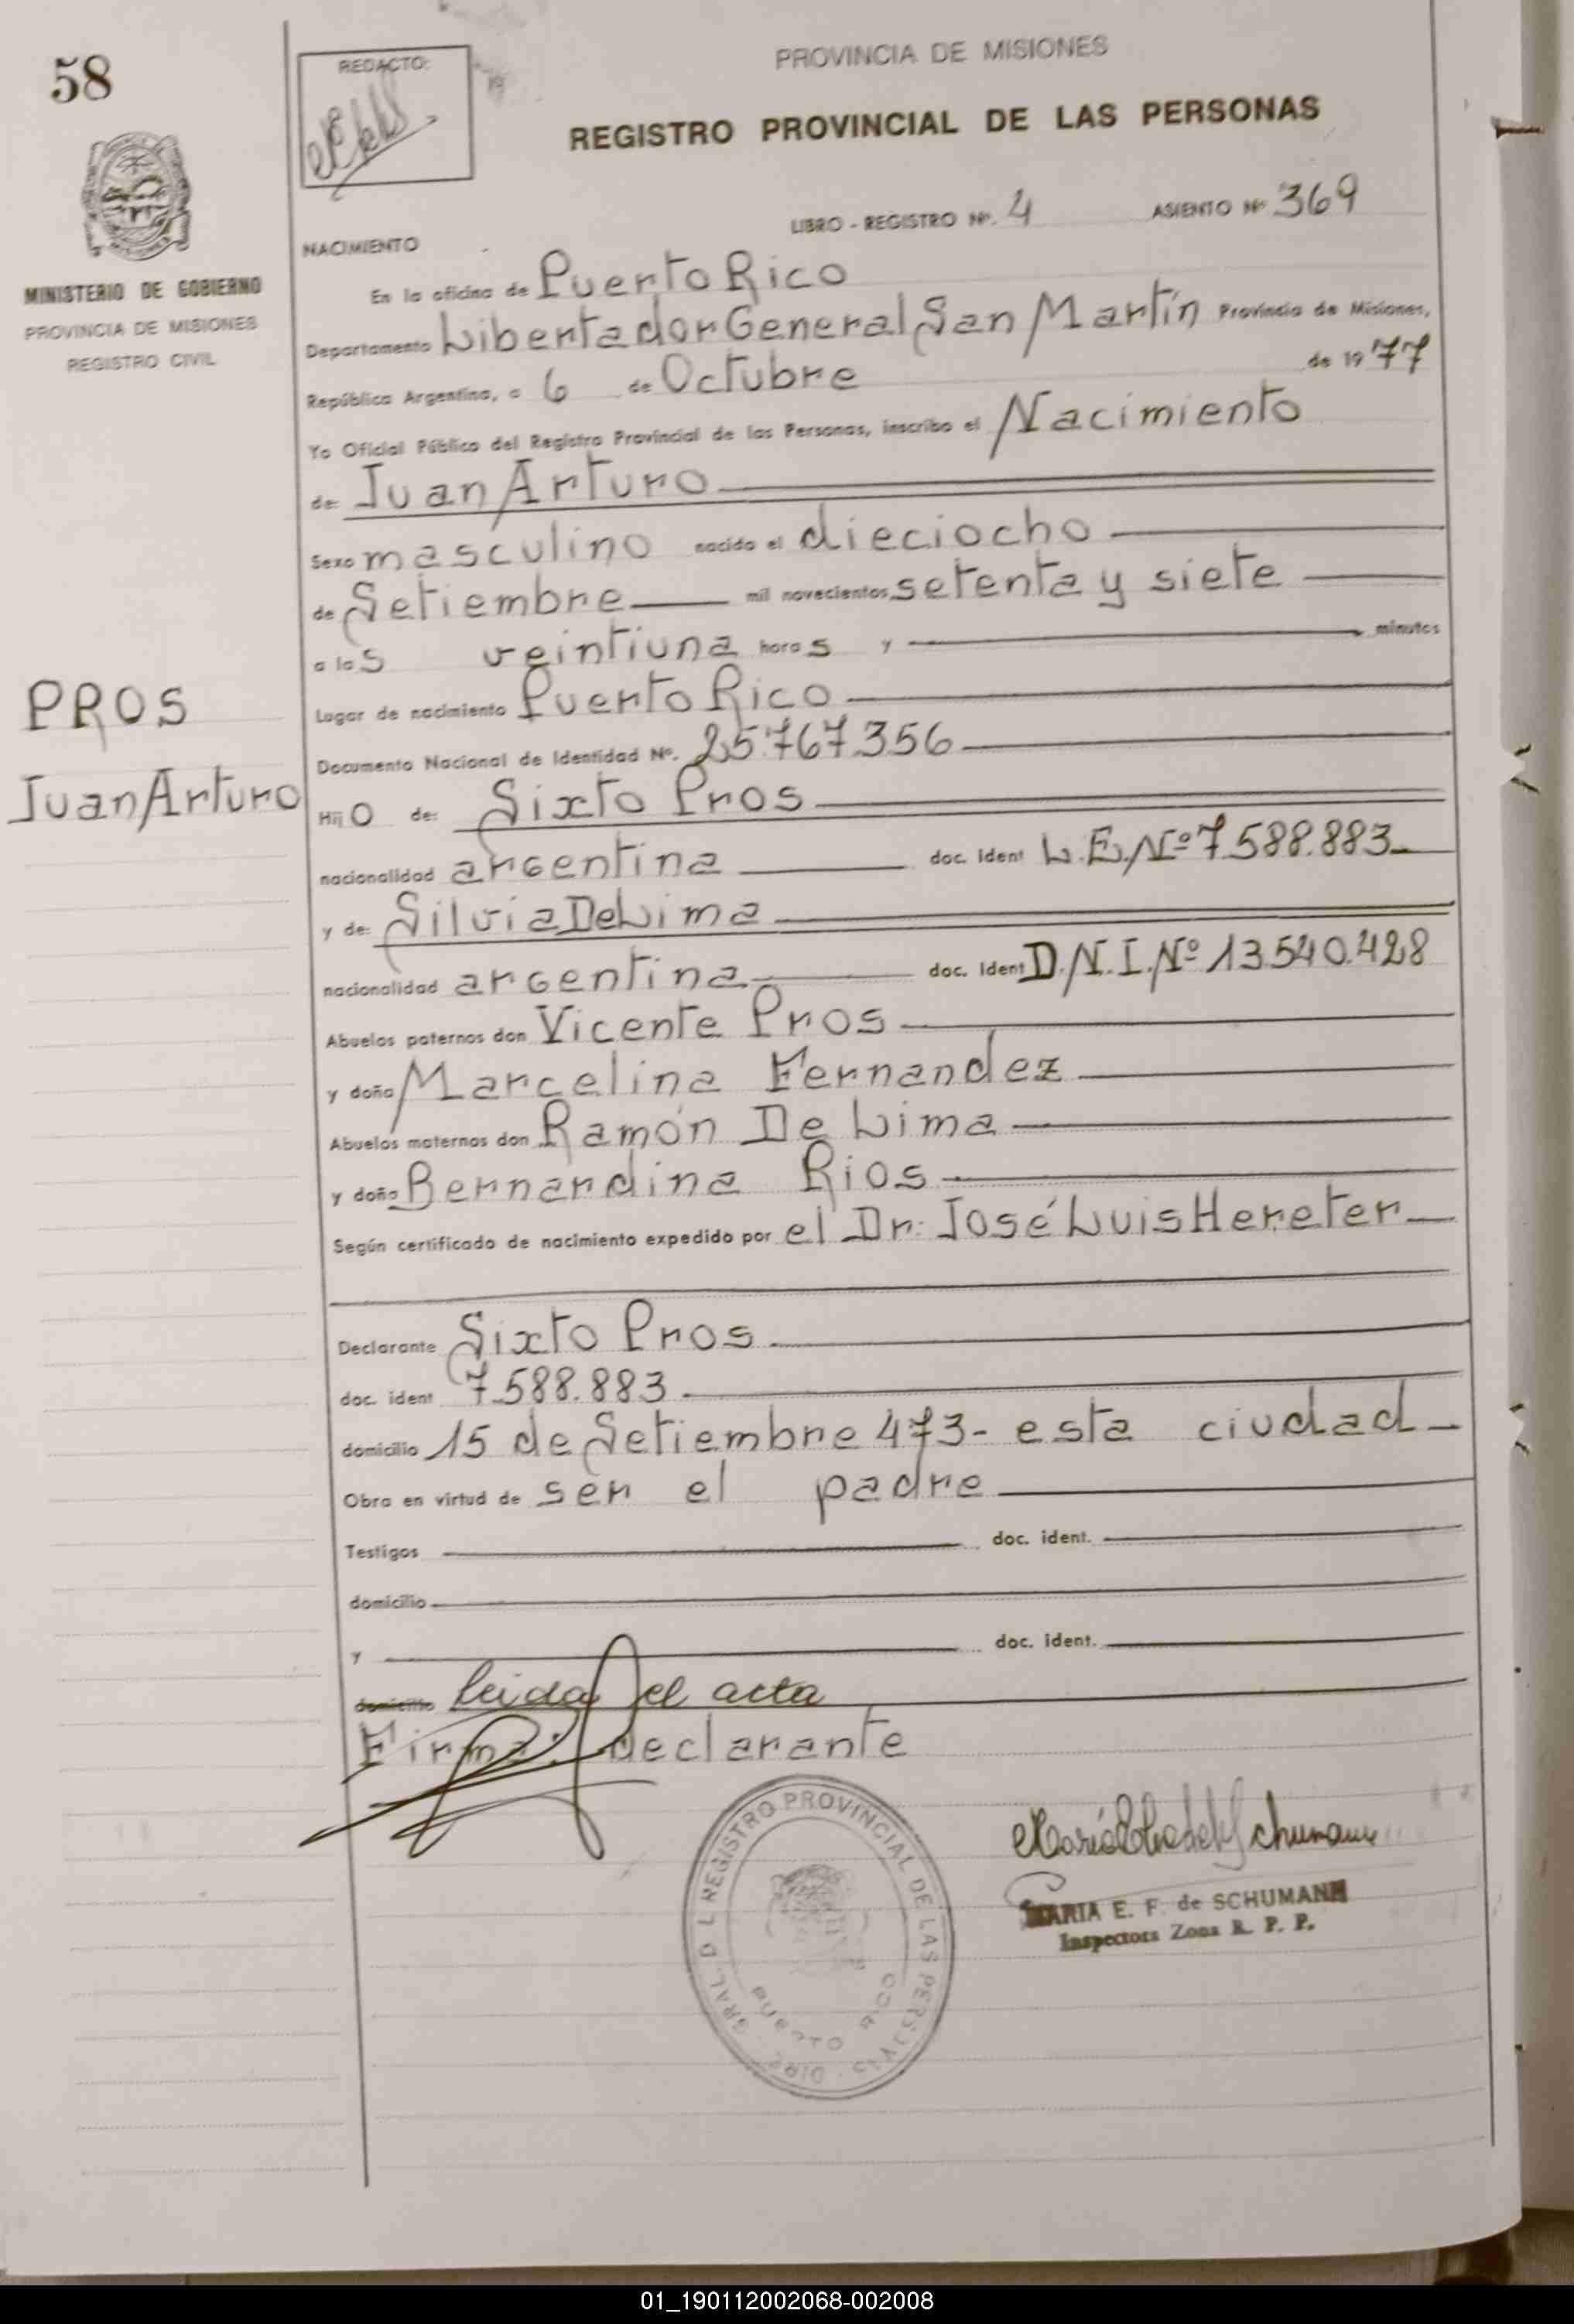 58
REDACTO:
PROVINCIA DE MISIONES
REGISTRO PROVINCIAL DE LAS PERSONAS
LIBRO - REGISTRO Nº. 4 ASIENTO Nº 369
MINISTERIO DE GOBIERNO
PROVINCIA DE MISIONES
REGISTRO CIVIL
PROS
Juan Arturo
NACIMIENTO
En la oficina de Puerto Rico
Departamento Libertador General San Martín Provincia de Misiones,
República Argentina, a 6 de Octubre de 1977
Yo Oficial Público del Registro Provincial de las Personas, inscribo el Nacimiento
de: Juan Arturo
Sexo masculino nacido el dieciocho
de Setiembre mil novecientos setenta y siete
a las veintiuna horas y minutos
Lugar de nacimiento Puerto Rico
Documento Nacional de Identidad Nº. 25.767.356
Hijo de: Sixto Pros
nacionalidad argentina doc. ident L.E.Nº 7.588.883
y de: Silvia De Lima
nacionalidad argentina doc. ident D.N.I.Nº 13.540.428
Abuelos paternos don Vicente Pros
y doña Marcelina Fernandez
Abuelos maternos don Ramón De Lima
y doña Bernardina Rios
Según certificado de nacimiento expedido por el Dr. José Luis Hereter
Declarante Sixto Pros
doc. ident 7.588.883
domicilio 15 de Setiembre 473- esta ciudad
Obra en virtud de ser el padre
Testigos doc. ident.
domicilio
y doc. ident.
domicilio leida el acta
Firma: declarante
REGISTRO PROVINCIAL DE LAS PERSONAS
PUERTO RICO
MARIA E. F. de SCHUMANN
Inspectora Zona R. P. P.
01_190112002068-002008